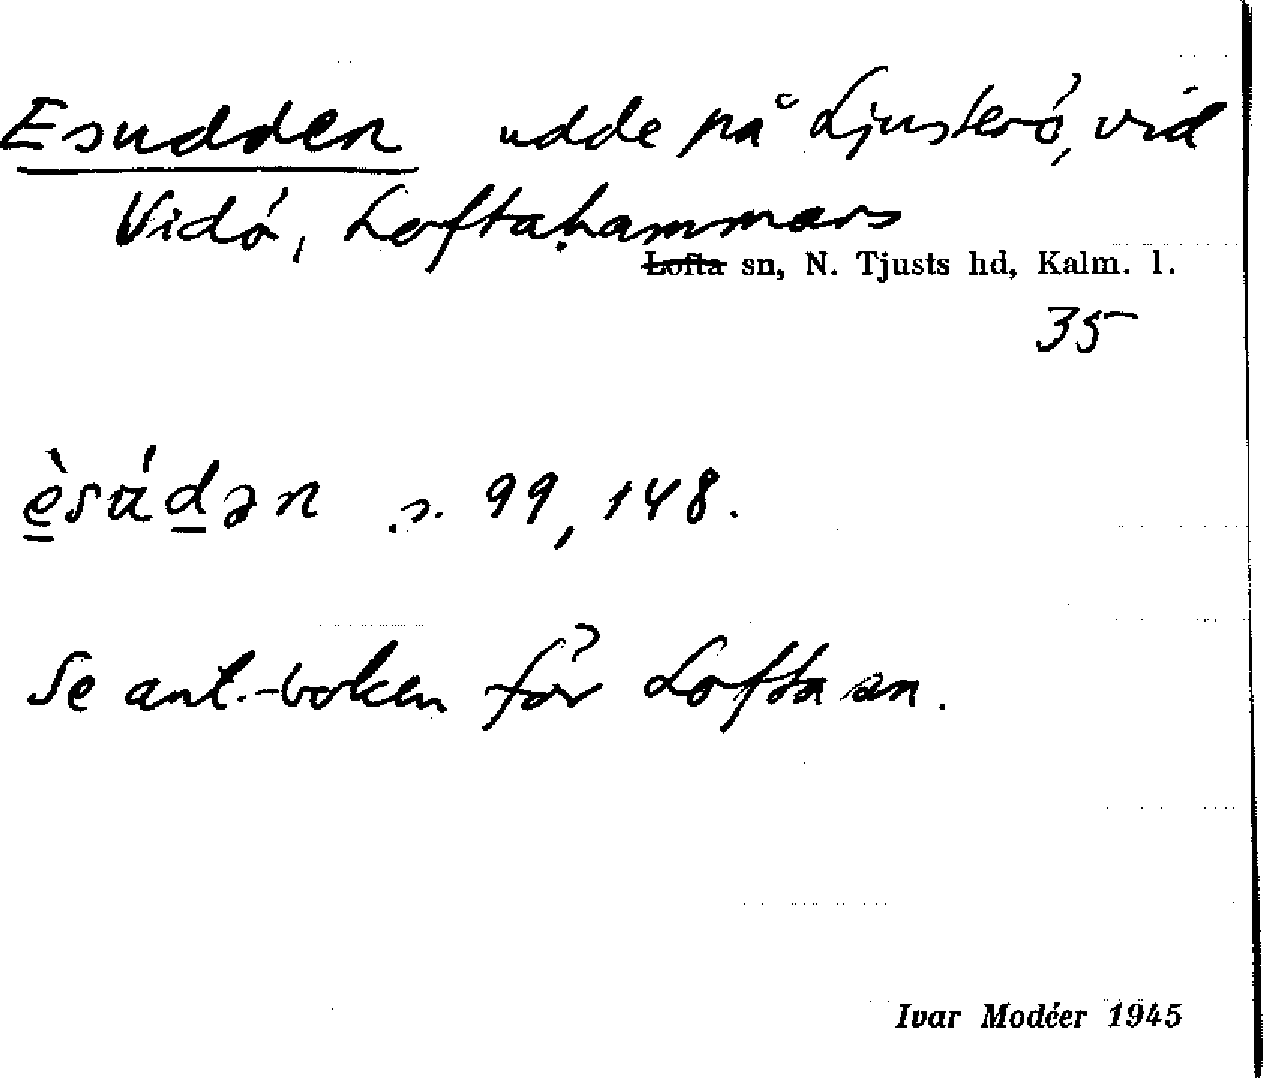 Esudden udde på Ljusterö, vid
Vidö, Loftahammars
Lofta sn, N. Tjusts hd, Kalm. l.
35
s. 99, 148.
Se ant.-boken för Lofta sn.
Ivar Modéer 1945